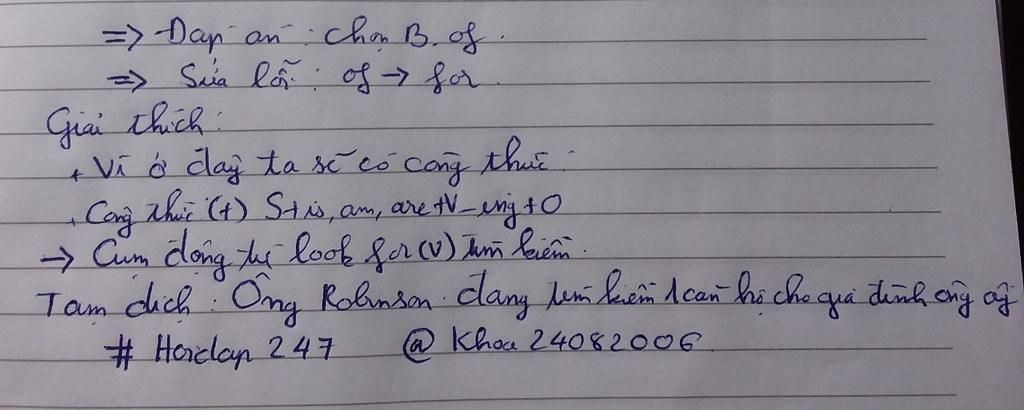 => Đáp án : chọn B. of.
=> Sửa lỗi : of → for
Giải thích :
+ Vì ở đây ta sẽ có công thức :
+ Công thức (+) S + is, am, are + V_ing + O
→ Cụm động từ look for (v) tìm kiếm.
Tạm dịch : Ông Robinson đang tìm kiếm 1 căn hộ cho gia đình ông ấy
# Hoidap 247 @ Khoa 24082006